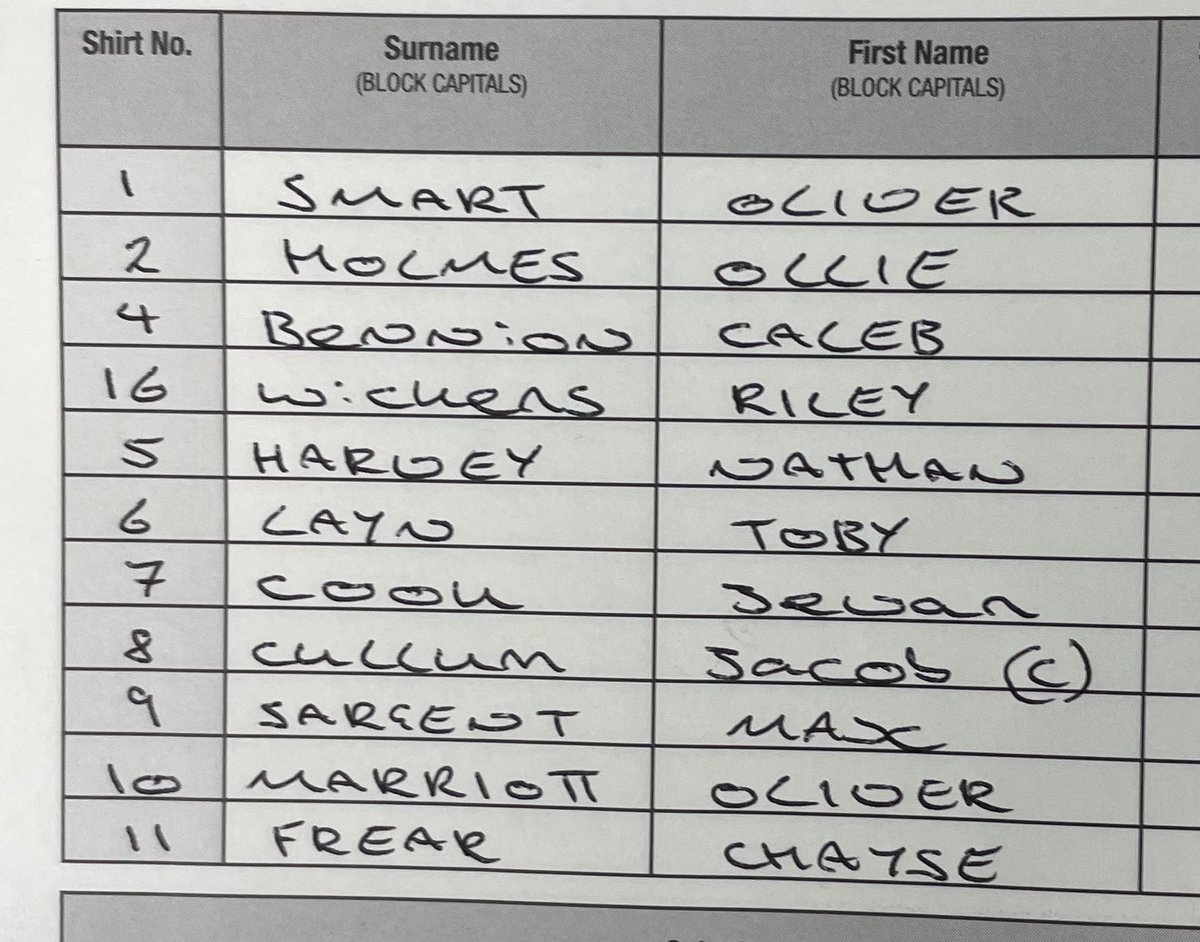 Shirt No. Surname First Name
(BLOCK CAPITALS) (BLOCK CAPITALS)
1 SMART OLIVER
2 HOLMES OLLIE
4 BeNNiON CALEB
16 WickeNS RILEY
5 HARVEY NATHAN
6 LAYN TOBY
7 COOK Jevan
8 CULLUM Jacob (C)
9 SARGENT MAX
10 MARRIOTT OLIVER
11 FREAR CHAYSE